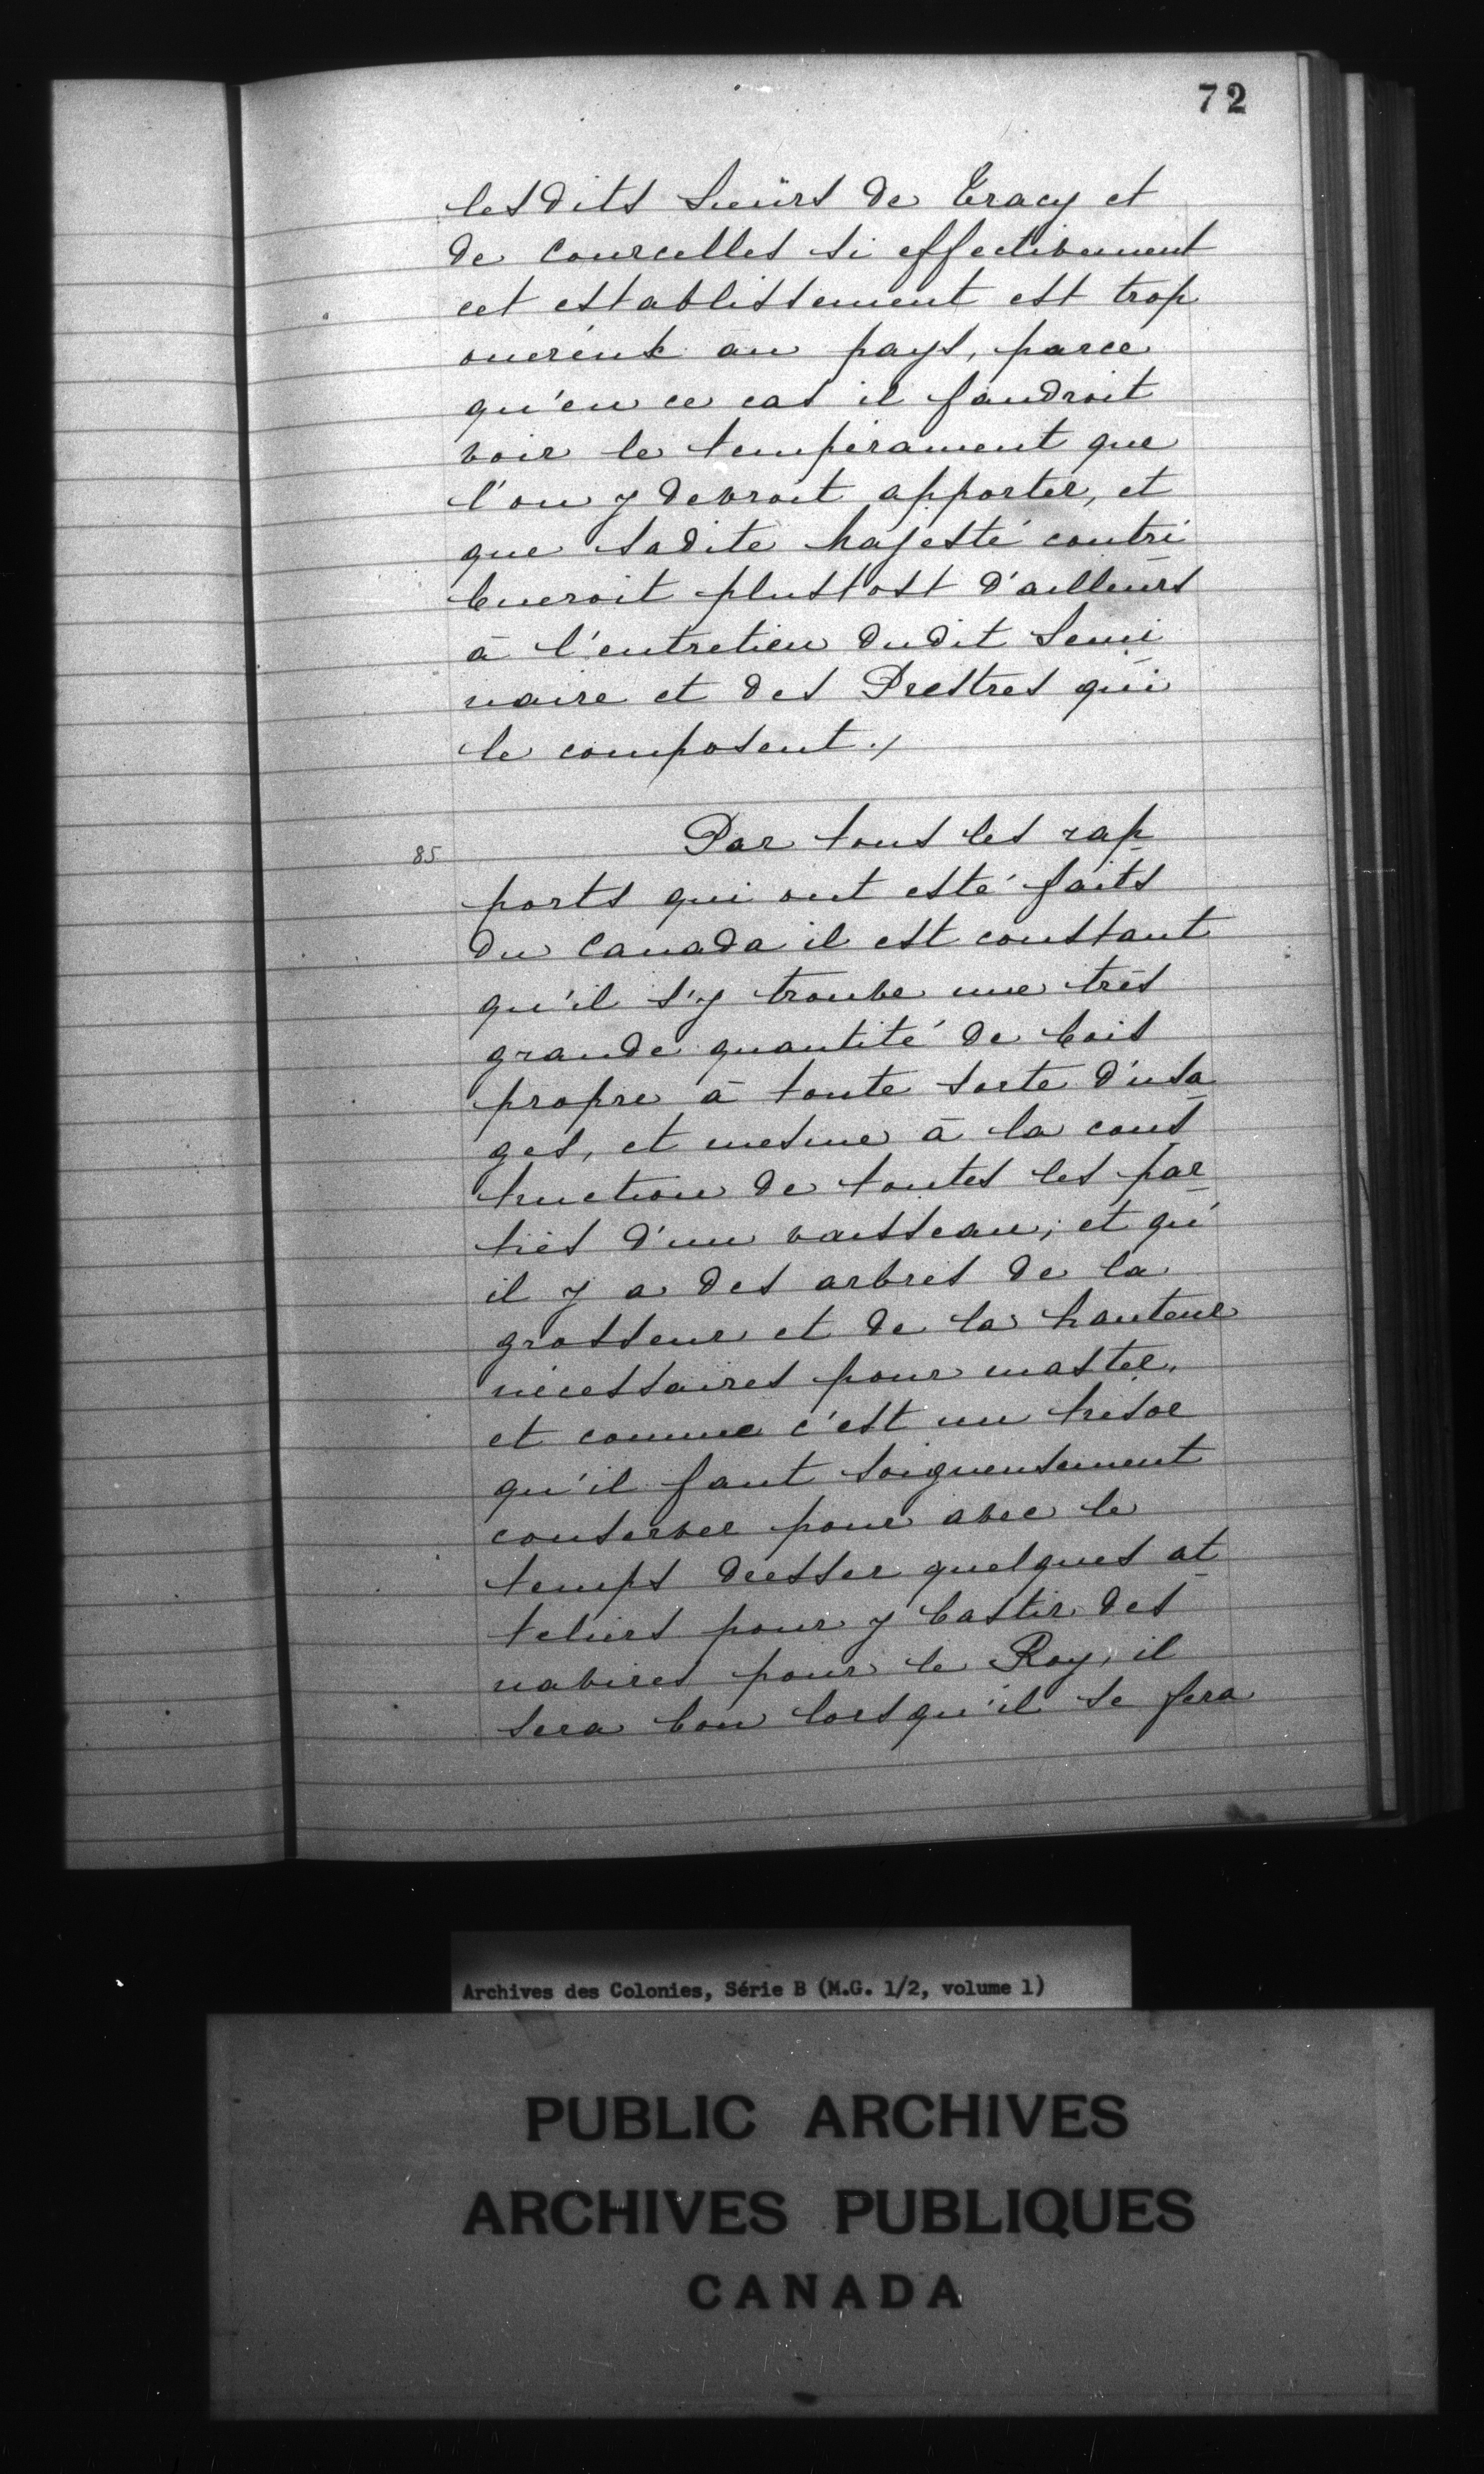 72
lesdits Sieurs de Tracy et
de Courcelles si effectivement
cet establissement est trop
onéreux au pays, parce
qu'en ce cas il faudroit
voir le tempérament que
l'on y devroit apporter, et
que Sadite Majesté contri
bueroit plustost d'ailleurs
à l'entretien dudit Semi
naire et des Prestres qui
le composent./
85
Par tous les rap
ports qui ont esté faits
du Canada il est constant
qu'il s'y trouve une très
grande quantité de bois
propre à toute sorte d'usa
ges, et mesme à la cons
truction de toutes les par
ties d'un vaisseau; et qu'
il y a des arbres de la
grosseur et de la hauteur
nécessaires pour master,
et comme c'est un trésor
qu'il faut soigneusement
conserver pour avec le
temps dresser quelques at
teliers pour y bastir des
navires pour le Roy, il
sera bon lorsqu'il se fera
Archives des Colonies, Série B (M.G. 1/2, volume 1)
PUBLIC ARCHIVES
ARCHIVES PUBLIQUES
CANADA